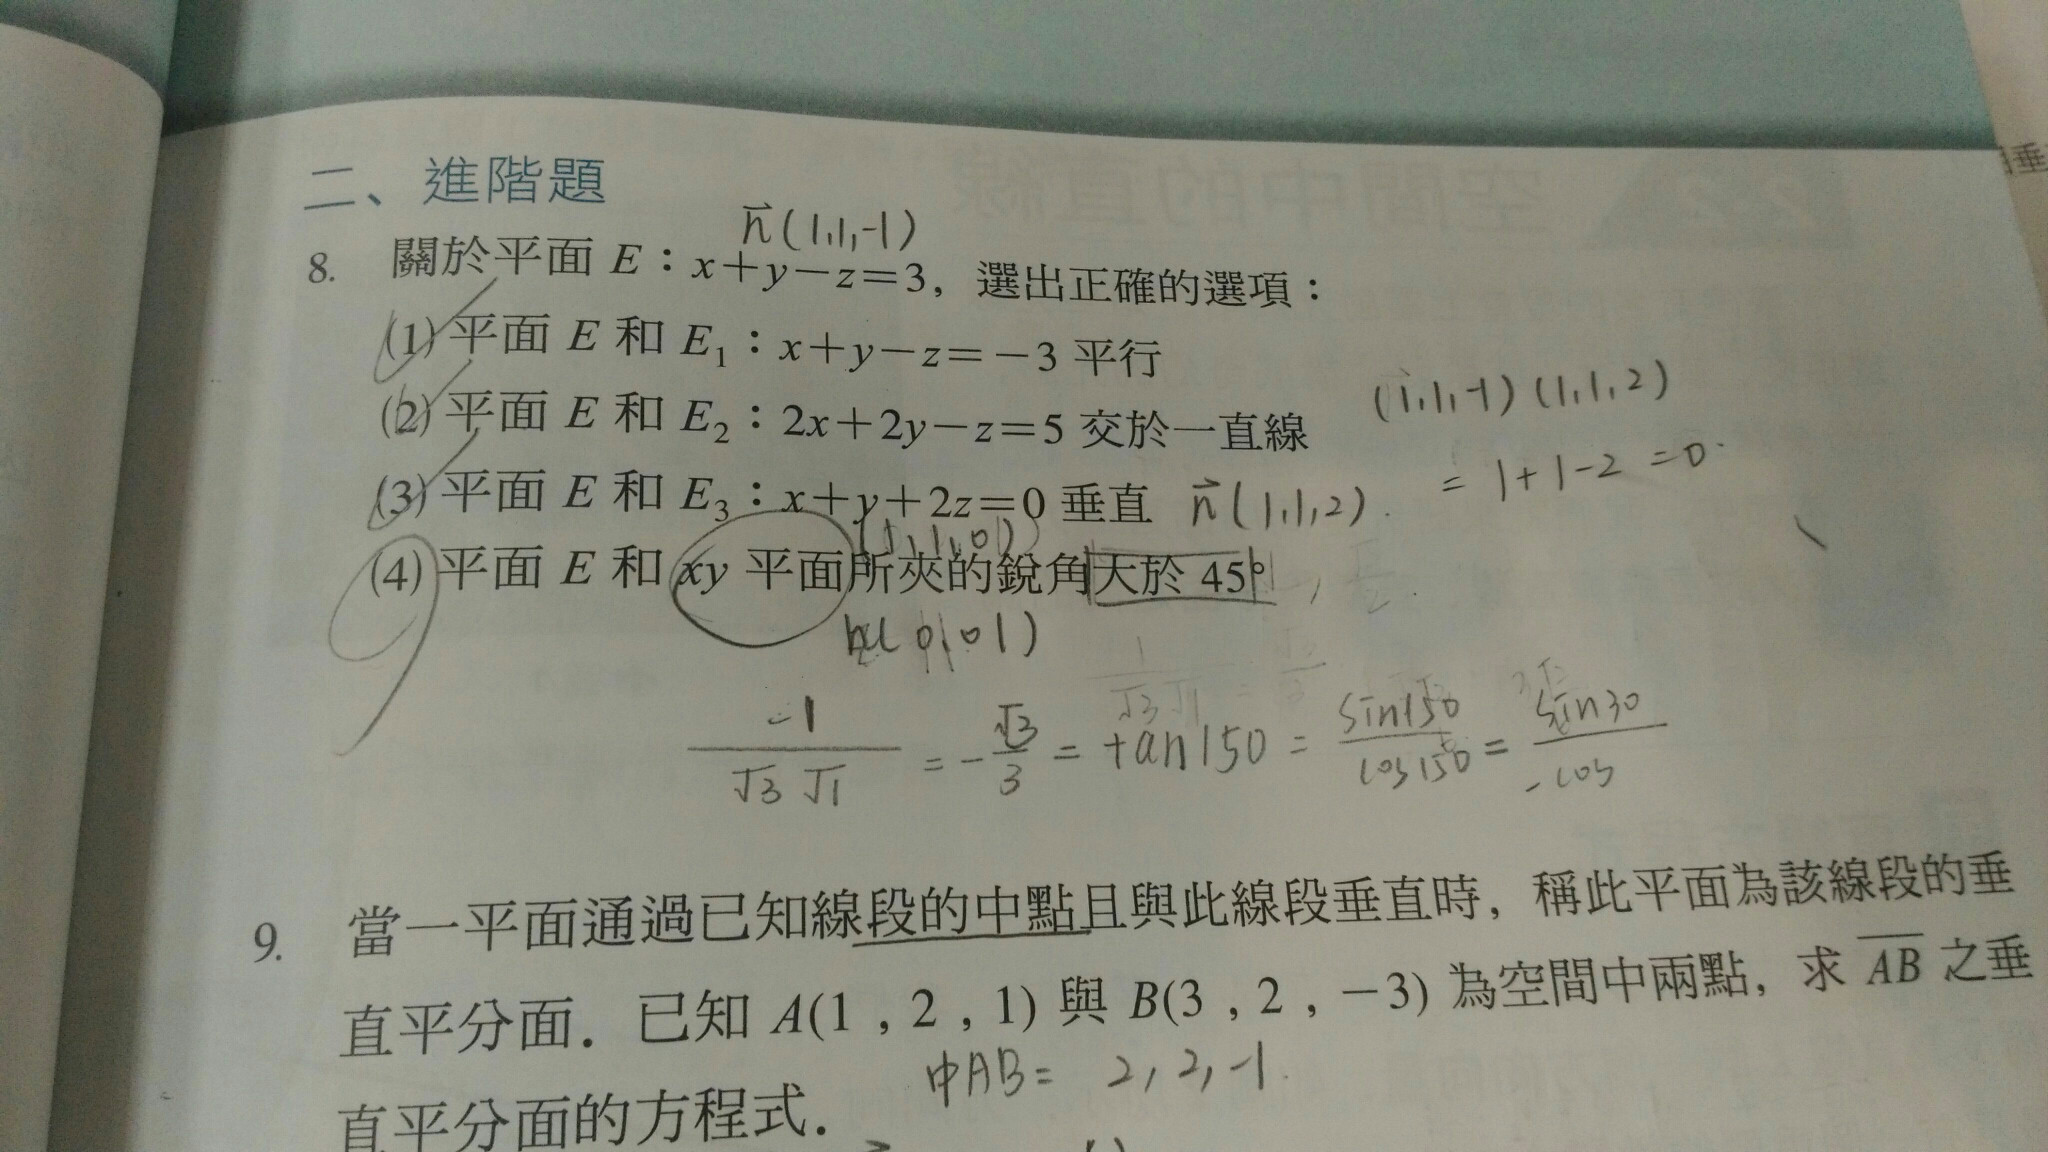 二、進階題
n(1,1,-1)
8. 關於平面 E：x+y-z=3，選出正確的選項：
(1) 平面 E 和 E₁：x+y-z=-3 平行
(2) 平面 E 和 E₂：2x+2y-z=5 交於一直線
(1,1,-1)(1,1,2)
= 1+1-2=0
(3) 平面 E 和 E₃：x+y+2z=0 垂直 n(1,1,2).
(1,1,0)
(4) 平面 E 和 xy 平面所夾的銳角大於 45°
(0,01)
-1/√3√1 = -√3/3 = tan150 = sin150/cos150 = sin30/-cos
9. 當一平面通過已知線段的中點且與此線段垂直時，稱此平面為該線段的垂
直平分面．已知 A(1，2，1) 與 B(3，2，-3) 為空間中兩點，求 AB 之垂
中AB= 2,2,-1.
直平分面的方程式．